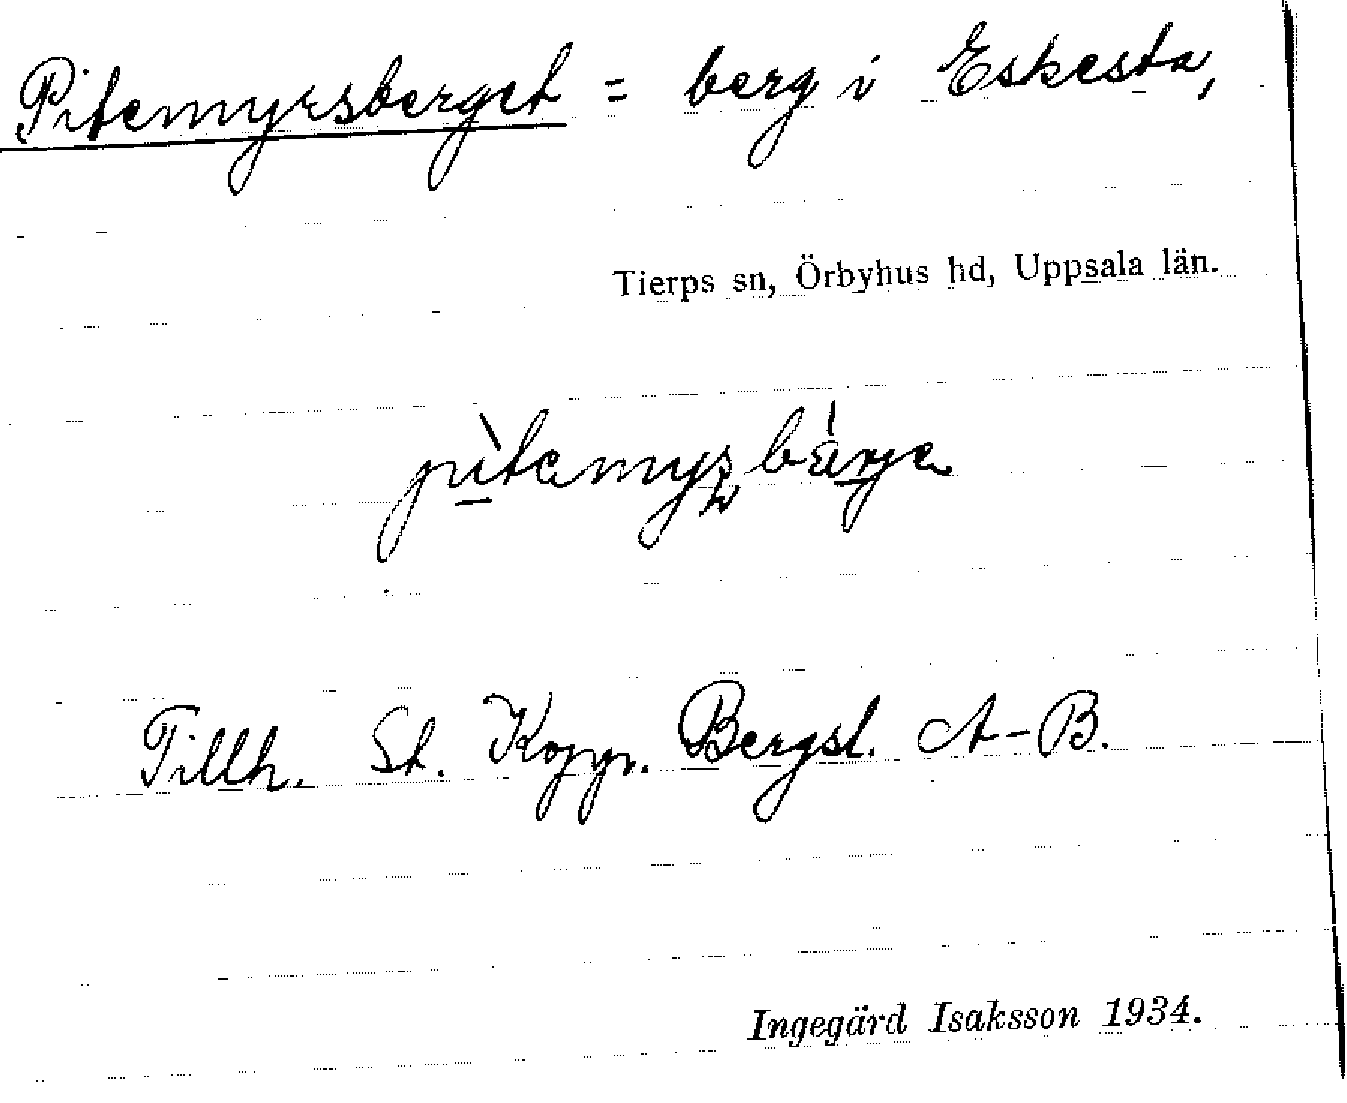 Pitemyrsberget = berg i Eskesta,
Tierps sn, Örbyhus hd, Uppsala län.
pìtemyʂbárje
Tillh. St. Kopp. Bergsl. A-B.
Ingegärd Isaksson 1934.